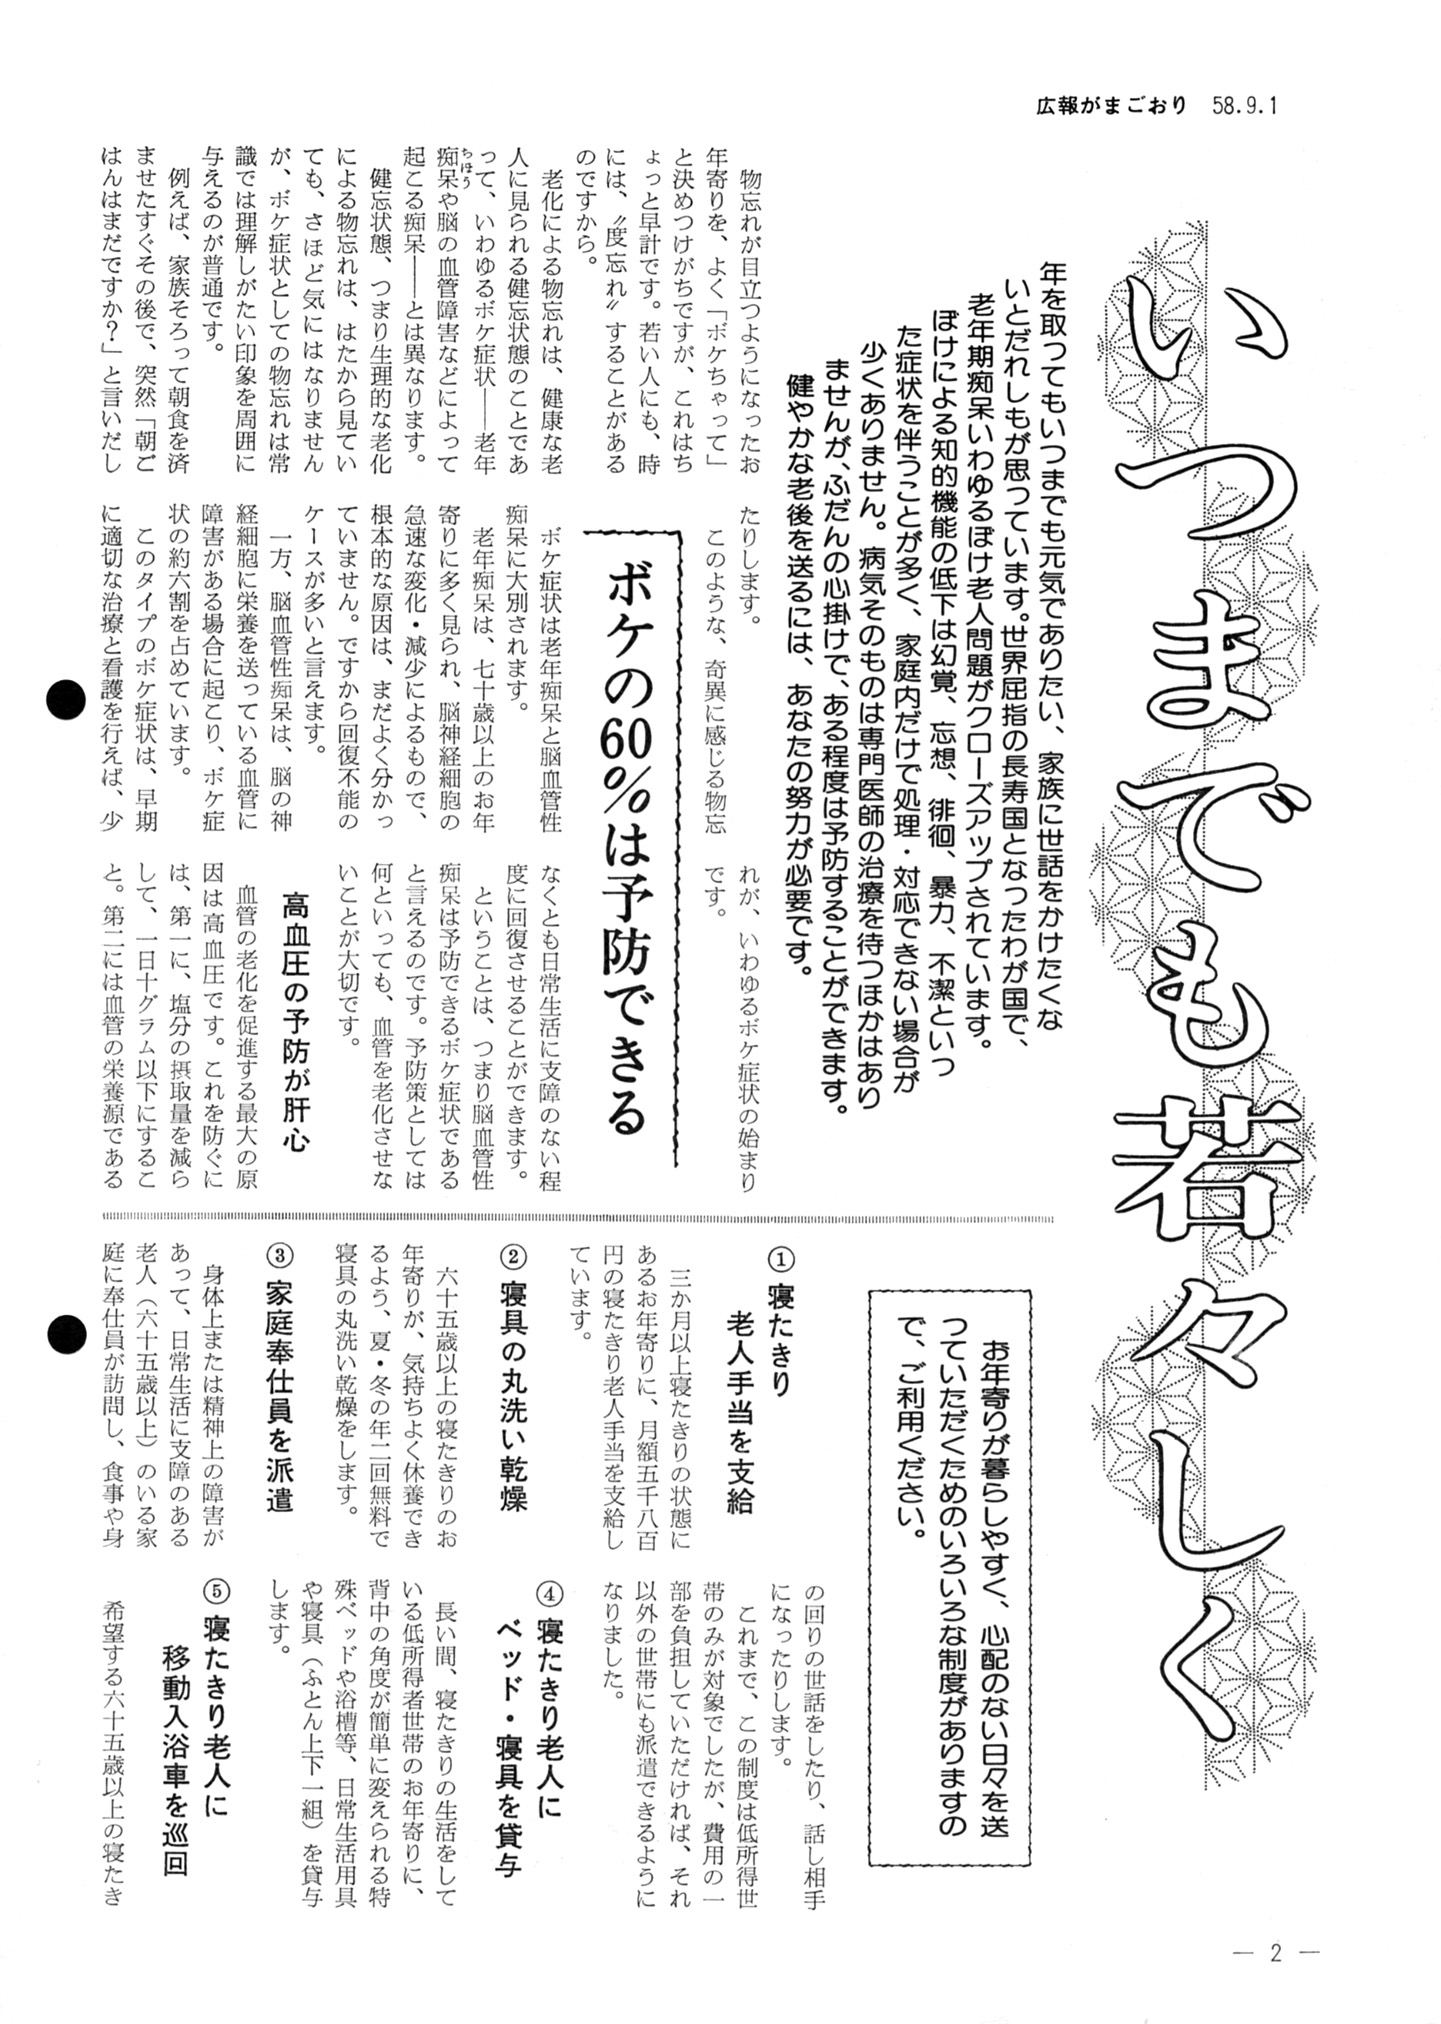 広報がまごおり 58.9.1
いつまでも若々しく
年を取ってもいつまでも元気でありたい、家族に世話をかけたくな
いとだれしもが思っています。世界屈指の長寿国となったわが国で、
老年期痴呆いわゆるぼけ老人問題がクローズアップされています。
ぼけによる知的機能の低下は幻覚、忘想、徘徊、暴力、不潔といっ
た症状を伴うことが多く、家庭内だけで処理・対応できない場合が
少くありません。病気そのものは専門医師の治療を待つほかはあり
ませんが、ふだんの心掛けで、ある程度は予防することができます。
健やかな老後を送るには、あなたの努力が必要です。
物忘れが目立つようになったお
年寄りを、よく「ボケちゃって」
と決めつけがちですが、これはち
ょっと早計です。若い人にも、時
には、〝度忘れ〟することがある
のですから。
老化による物忘れは、健康な老
人に見られる健忘状態のことであ
って、いわゆるボケ症状――老年
痴呆や脳の血管障害などによって
ちほう
起こる痴呆――とは異なります。
健忘状態、つまり生理的な老化
による物忘れは、はたから見てい
ても、さほど気にはなりません
が、ボケ症状としての物忘れは常
識では理解しがたい印象を周囲に
与えるのが普通です。
例えば、家族そろって朝食を済
ませたすぐその後で、突然「朝ご
はんはまだですか？」と言いだし
たりします。
このような、奇異に感じる物忘
れが、いわゆるボケ症状の始まり
です。
ボケの60％は予防できる
ボケ症状は老年痴呆と脳血管性
痴呆に大別されます。
老年痴呆は、七十歳以上のお年
寄りに多く見られ、脳神経細胞の
急速な変化・減少によるもので、
根本的な原因は、まだよく分かっ
ていません。ですから回復不能の
ケースが多いと言えます。
一方、脳血管性痴呆は、脳の神
経細胞に栄養を送っている血管に
障害がある場合に起こり、ボケ症
状の約六割を占めています。
このタイプのボケ症状は、早期
に適切な治療と看護を行えば、少
なくとも日常生活に支障のない程
度に回復させることができます。
ということは、つまり脳血管性
痴呆は予防できるボケ症状である
と言えるのです。予防策としては
何といっても、血管を老化させな
いことが大切です。
高血圧の予防が肝心
血管の老化を促進する最大の原
因は高血圧です。これを防ぐに
は、第一に、塩分の摂取量を減ら
して、一日十グラム以下にするこ
と。第二には血管の栄養源である
お年寄りが暮らしやすく、心配のない日々を送
っていただくためのいろいろな制度がありますの
で、ご利用ください。
① 寝たきり
老人手当を支給
三か月以上寝たきりの状態に
あるお年寄りに、月額五千八百
円の寝たきり老人手当を支給し
ています。
② 寝具の丸洗い乾燥
六十五歳以上の寝たきりのお
年寄りが、気持ちよく休養でき
るよう、夏・冬の年二回無料で
寝具の丸洗い乾燥をします。
③ 家庭奉仕員を派遣
身体上または精神上の障害が
あって、日常生活に支障のある
老人（六十五歳以上）のいる家
庭に奉仕員が訪問し、食事や身
の回りの世話をしたり、話し相手
になったりします。
これまで、この制度は低所得世
帯のみが対象でしたが、費用の一
部を負担していただければ、それ
以外の世帯にも派遣できるように
なりました。
④ 寝たきり老人に
ベッド・寝具を貸与
長い間、寝たきりの生活をして
いる低所得者世帯のお年寄りに、
背中の角度が簡単に変えられる特
殊ベッドや浴槽等、日常生活用具
や寝具（ふとん上下一組）を貸与
します。
⑤ 寝たきり老人に
移動入浴車を巡回
希望する六十五歳以上の寝たき
— 2 —